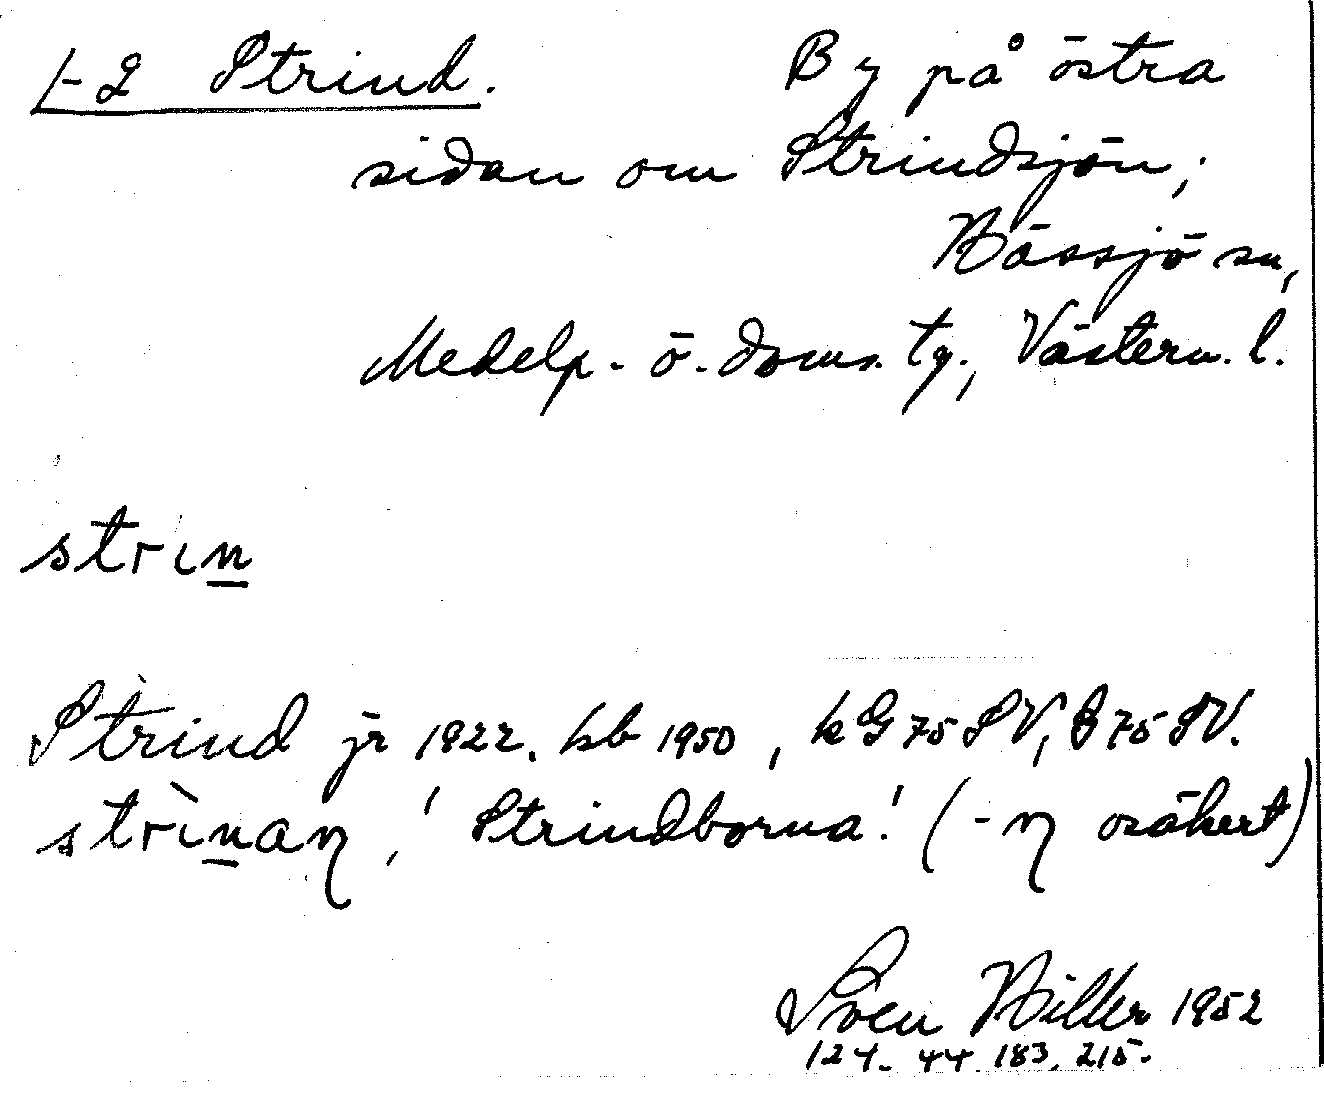 1-2 Strind. By på östra
sidan om Strindsjön,
Hässjö sn,
Medelp. ö. doms. tg., Västern. l.
strın
Strind jr 1922. kb 1950, kG 75 SV, B 75 SV.
strìnaŋ, 'Strindborna'. (-ŋ osäkert)
Sven Hiller 1952
124. 44 183. 215.